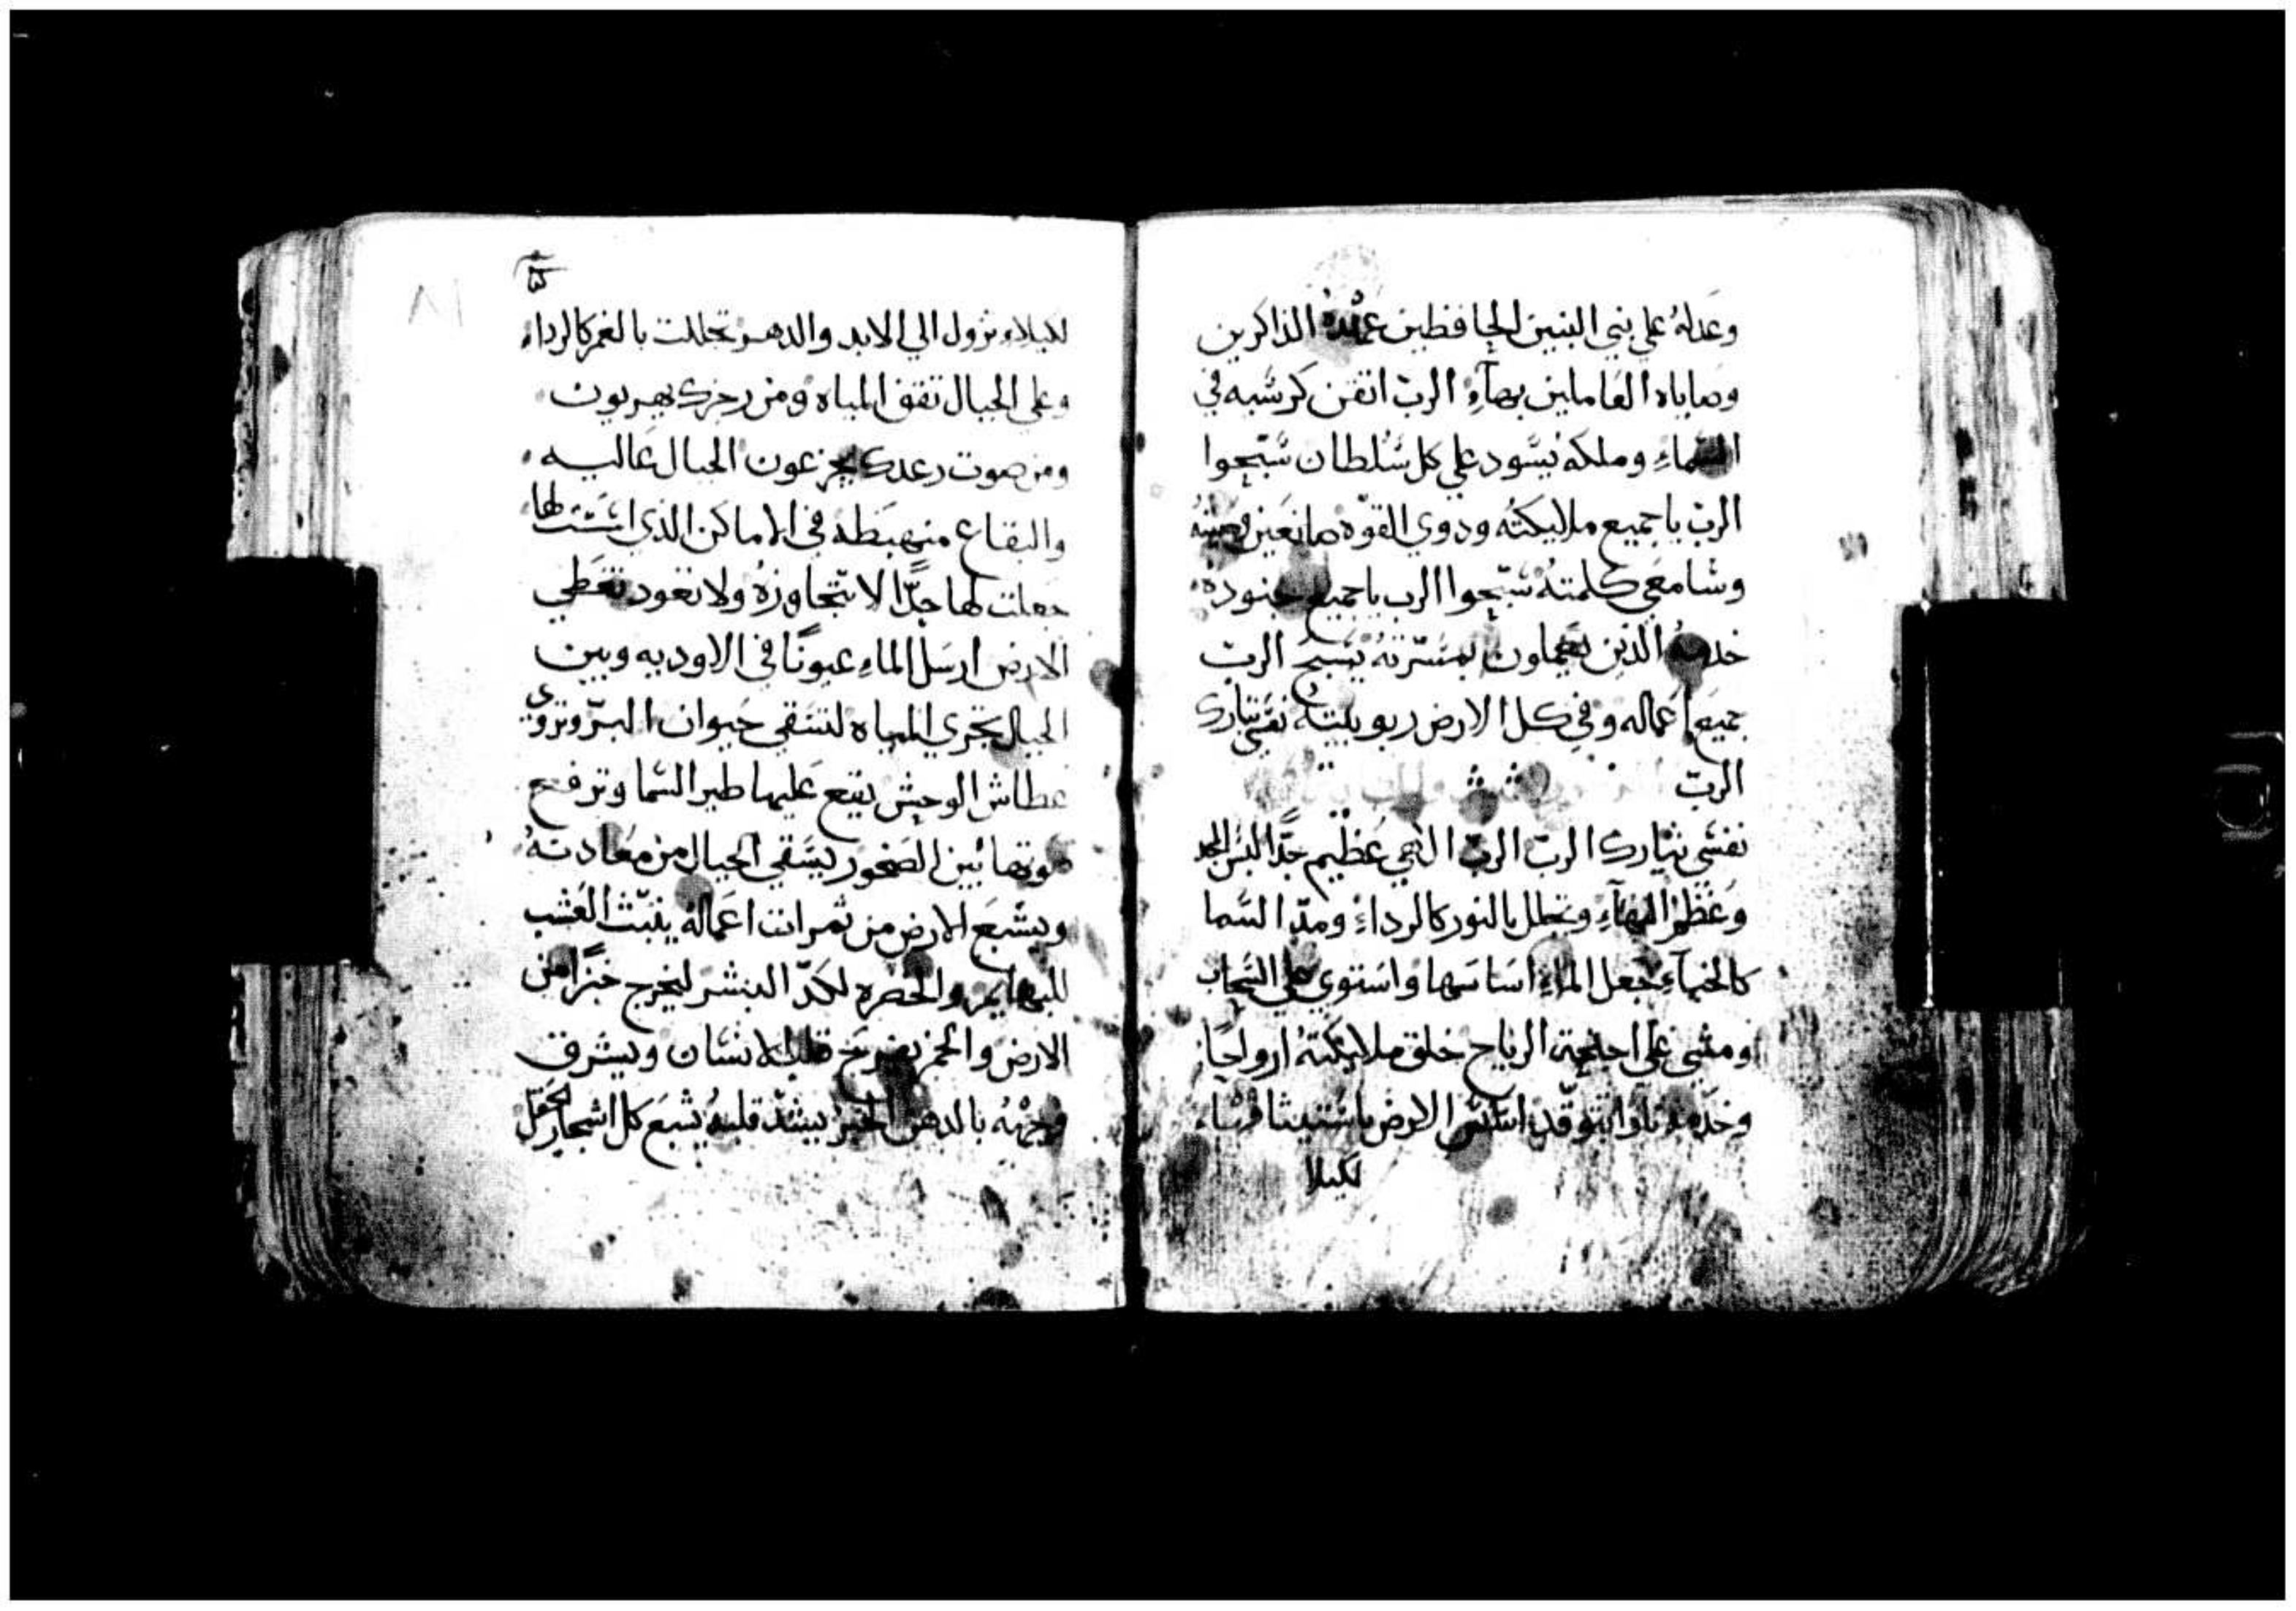 وعَدلهُ علي بني البنين الحافظين عهدهُ الذاكرين
وصاياه العاملين بهآءِ الربّ اتقن كرسّيه في
السّماءِ وملكه يسّود علي كل سُلطان سّبّحوا
الربّ يا جميع ملايكتُه وذوي القوّه صانعَين
وسّامعَي كلمتهُ سّبّحوا الرب يا جميع جنودهُ
خدمهُ الذين يعَماون بمسّرتهُ يسّبحَ الربّ
جميَع اعَماله وفي كل الارض ربوبيتهُ نفسّي تبارك
الربّ
نفسّي تبارك الربّ الربّ الهي عَظيم جدًّا لبسَ المجد
وعَظم البهآءِ وتجلل بالنور كالرداءِ ومدّ السّما
كالخيمآءِ جَعل الماءِ اسَاسَها واسَتوي علي السّحاب
ومشي عَلي اجنحة الرياح خلق ملايكتهُ ارواحًا
وخدّمه نارًا تتوقّد اسّسّ الارض
لكيلا
٨١
لكيلاءِ تزول الي الابد والدهر تجللت بالغمر كالرداءِ
وعلي الجبال تقف المياه ومن رجزك يهربون
ومن صوت رعدك يجزعون الجبال عَاليه
والبقاع منهبَطه في الاماكن الذي اسّسَت لها
جعلت لها حدًّا لا تتجاوزهُ ولا تعَود تغَطي
الارض ارسَل الماءِ عيونًا في الاوديه وبين
الجبال تجري المياه لتسَقي حَيوان البرّ وتروَي
عطاش الوحش يقع عَليها طير السّما وترفع
صوتها بين الصَخور يسَقي الجبال من
ويشبعَ الارض من ثمرات اعَماله ينبّت العَشب
للبهايم والخضره لكدّ البشر ليخرج خبزًا من
الارض والخمر يفرحَ قلب الانسّان ويشرق
وجهُه بالدهن الخبز يشدّ قلبهُ يشبعَ كل اشجار الحَقل